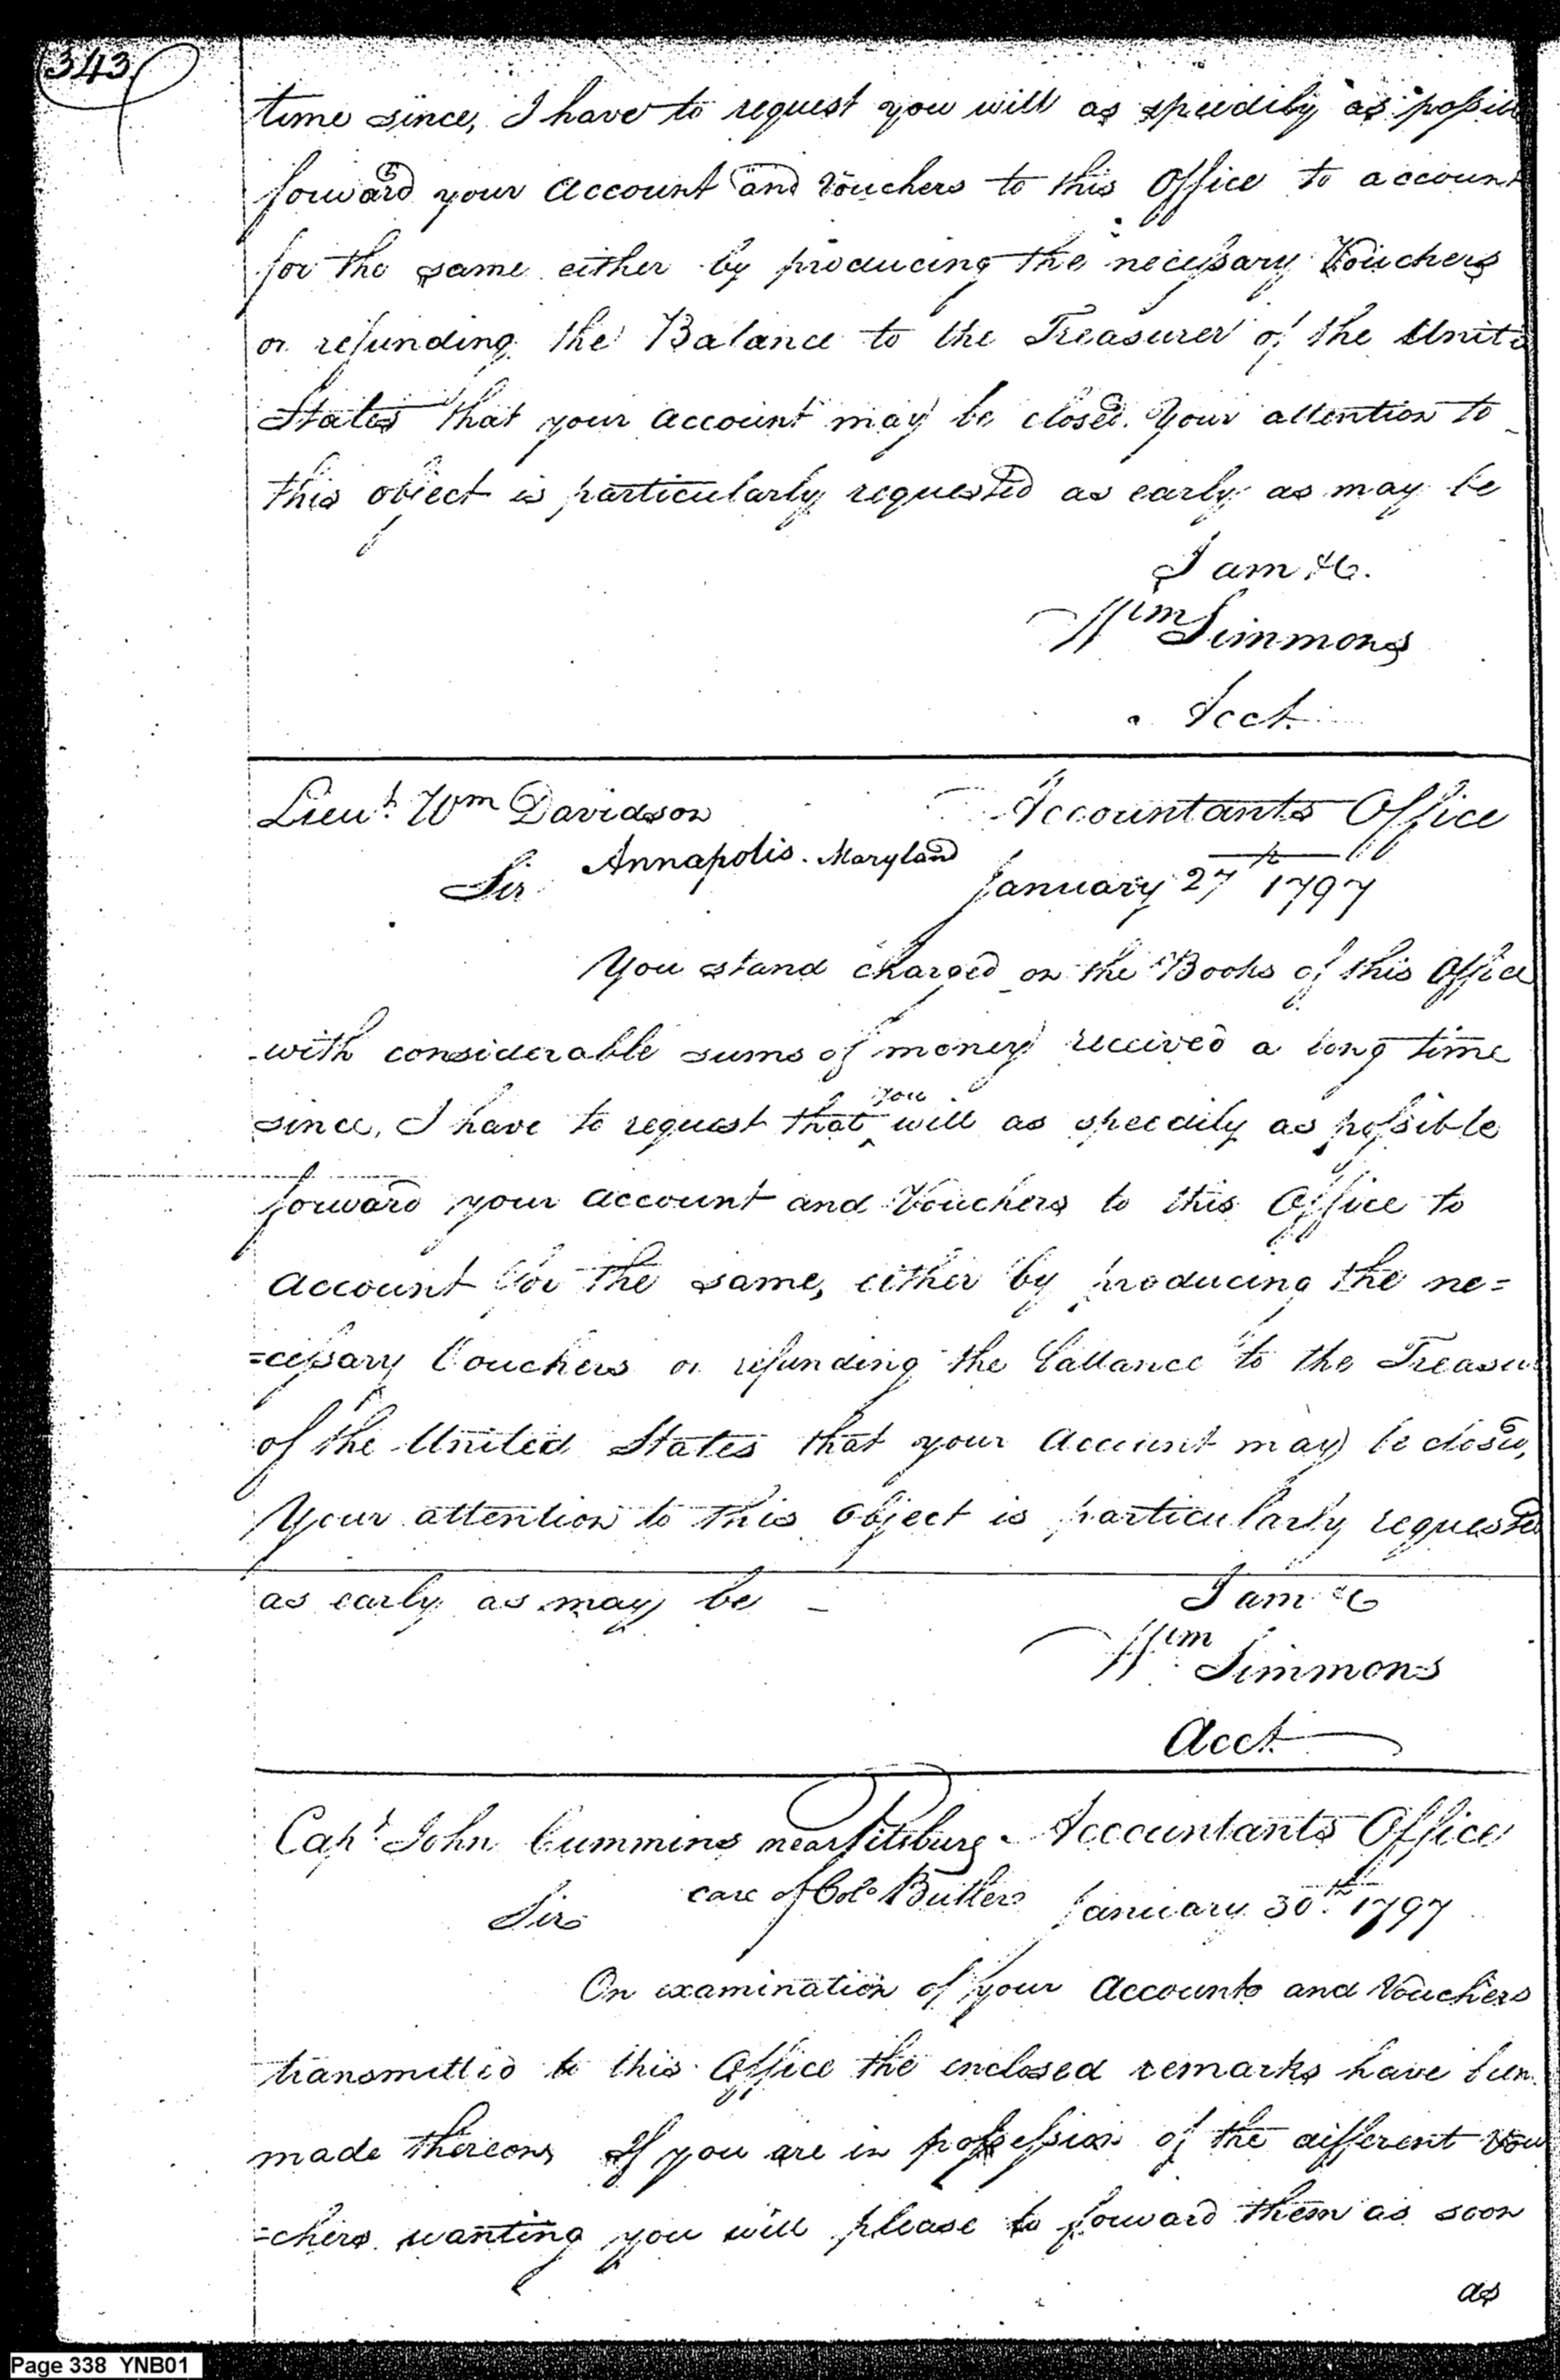 343
time since, I have to request you will as speedily as possible
forward your account and Vouchers to this Office to account
for the same either by producing the necessary Vouchers
or refunding the Balance to the Treasurer of the United
States that your account may be closed. Your attention to
this object is particularly requested as early as may be
I am &c.
Wm Simmons
Acct.
Lieut. Wm Davidson Accountants Office
Annapolis. Maryland
Sir January 27th 1797
You stand charged on the Books of this Office
with considerable sums of money received a long time
since, I have to request that you will as speedily as possible
forward your account and Vouchers to this Office to
account for the same, either by producing the ne=
=cessary Vouchers or refunding the ballance to the Treasu
of the United States that your account may be closed,
Your attention to this object is particularly requested
as early as may be – I am &c
Wm Simmons
Acct.
Capt. John Cummins near Pitsburg - Accountants Office
care of Colo Butlers January 30th. 1797
Sir
On examination of your accounts and Vouchers
transmitted to this Office the enclosed remarks have been
made thereon, If you are in possession of the different vou
=chers wanting you will please to forward them as soon
as
Page 338 YNB01